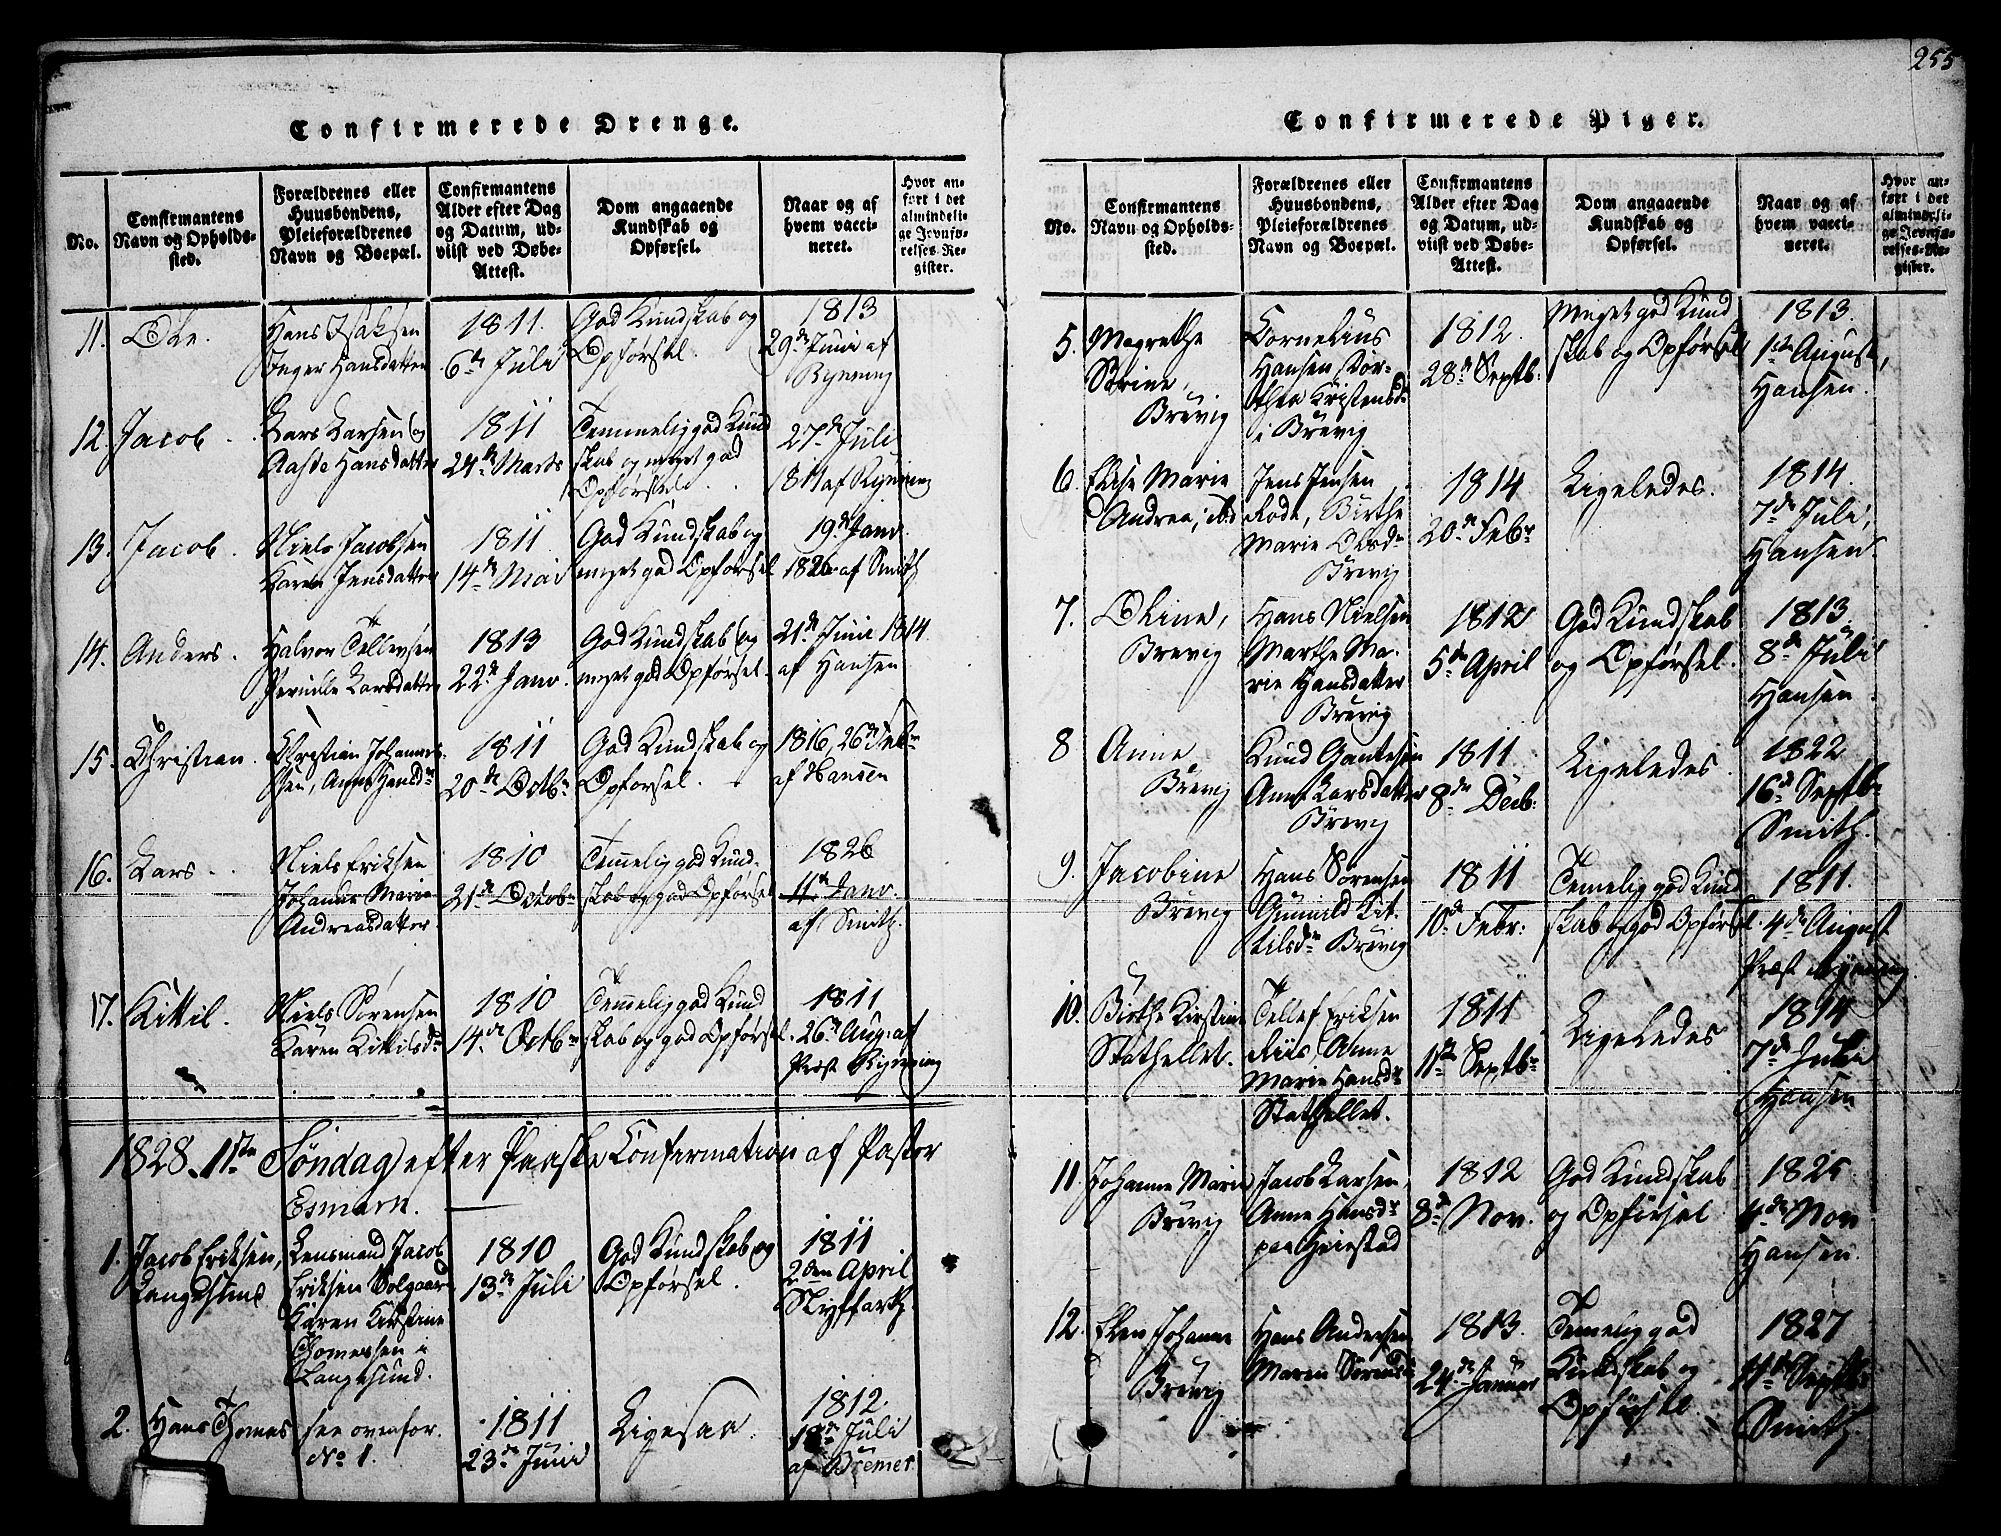 255
Confirmerede Drenge.
No.
Confirmantens
Navn og Opholds-
sted.
Forældrenes eller
Huusbondens,
Pleieforældrenes
Navn og Boepæl.
Confirmantens
Alder efter Dag
og Datum, ud-
viist ved Døbe-
Attest.
Dom angaaende
Kundskab og
Opførsel.
Naar og af
hvem vacci-
neret.
Hvor an-
ført i det
almindeli-
ge Jevnfø-
relses-Re-
gister.
11. Ole.
Hans Isaksen
Inger Hansdatter
1811.
6te Juli
God Kundskab og
Opførsel.
1813
29de Juni af
Rynning
12. Jacob.
Lars Larsen og
Aasde Hansdatter
1811
24de Marts
Temmelig god Kund
skab og meget god
Opførsel.
27de Juli
1811 af Rynning
13. Jacob.
Niels Jacobsen
Karen Jensdatter
1811
14de Mai
God Kundskab og
meget god Opførsel
19de Janv.
1826 af Smith
14. Anders.
Halvor Tellevsen
Pernille Larsdatter
1813
22de Janv.
God Kundskab og
meget god Opførsel.
21de Juni 1814.
af Hansen
15. Christian.
Christian Johannes-
sen, Anne Hansdr
1811
20de Octbr
God Kundskab og
Opførsel.
1816, 26de Febr
af Hansen
16. Lars.
Niels Eriksen
Johanne Marie
Andreasdatter.
1810
21de Octobr
Temelig god Kund-
skab og god Opførsel
1826
11te Janv.
af Smith.
17. Kittil.
Niels Sørensen
Karen Kittilsdr
1810
14de Octbr
Temelig god Kund
skab og god Opførsel.
1811
26de Aug. af
Præst Rynning
1828. 1ste Søndag efter Paaske Confirmation af Pastor
Esmark.
1. Jacob Eriksen,
Langesund
Lensmand Jacob
Eriksen Solgaar
Karen Kirstine
Thomessen i
Langesund.
1810
13de Juli
God Kundskab og
Opførsel.
1811
2den April
Nyffarth.
2. Hans Thomas
see ovenfor.
No 1.
1811
23de Juni
Ligesaa.
1812.
Juli
af Bremer.
Confirmerede Piger.
No.
Confirmantens
Navn og Opholds-
sted.
Forældrenes eller
Huusbondens,
Pleieforældrenes
Navn og Boepæl.
Confirmantens
Alder efter Dag
og Datum, ud-
viist ved Døbe-
Attest.
Dom angaaende
Kundskab og
Opførsel.
Naar og af
hvem vacci-
neret.
Hvor an-
ført i det
almindeli-
ge Jevnfø-
relses-Re-
gister.
5. Magrethe
Strine,
Brevig
Cornelius
Hansen, Dor-
thea Kristensdr
i Brevig
1812.
28de Septb:
Meget god Kund
skab og Opførsel
1813.
1ste August,
Hansen.
6. Elise Marie
Andrea, ibd
Jens Jensen
Rode, Birthe
Marie Olsdr
Brevig
1814
20de Febr
Ligeledes.
1814.
7de Juli,
Hansen.
7. Oline,
Brevig
Hans Nielsen
Marthe Ma-
rie Hansdatter
Brevig
1812
5te April
God Kundskab
og Opførsel.
1813.
8de Juli
Hansen.
8 Anne
Brevig
Knud Gautesen
Anne Larsdatter
Brevig
1811
8de Decb:
Ligeledes.
1822
16de Septbr
Smith.
9. Jacobine
Brevig
Hans Sørensen
Gunnild Kit-
tilsdr Brevig
1811
10de Febr:
Temelig god Kund
skab og god Opførsel.
1811.
4de August
Præst Rynning.
10. Birthe Kirstine
Stathellet.
Tellef Eriksen
Riis, Anne
Marie Hansdr
Stathellet.
1811
11te Septbr
Ligeledes
1814
7de Juli
Hansen
11. Johanne Marie
Brevig
Jacob Larsen,
Anne Hansdr
paa Heiestad
1812
8de Nov.
God Kundskab
og Opførsel
1825
4de Nov
Hansen.
12. Elen Johanne
Brevig
Hans Andersen
Maren Sørensdr
1813.
24de Januar
Temelig god
Kundskab og
Opførsel
1827
11te Septbr
Smith.